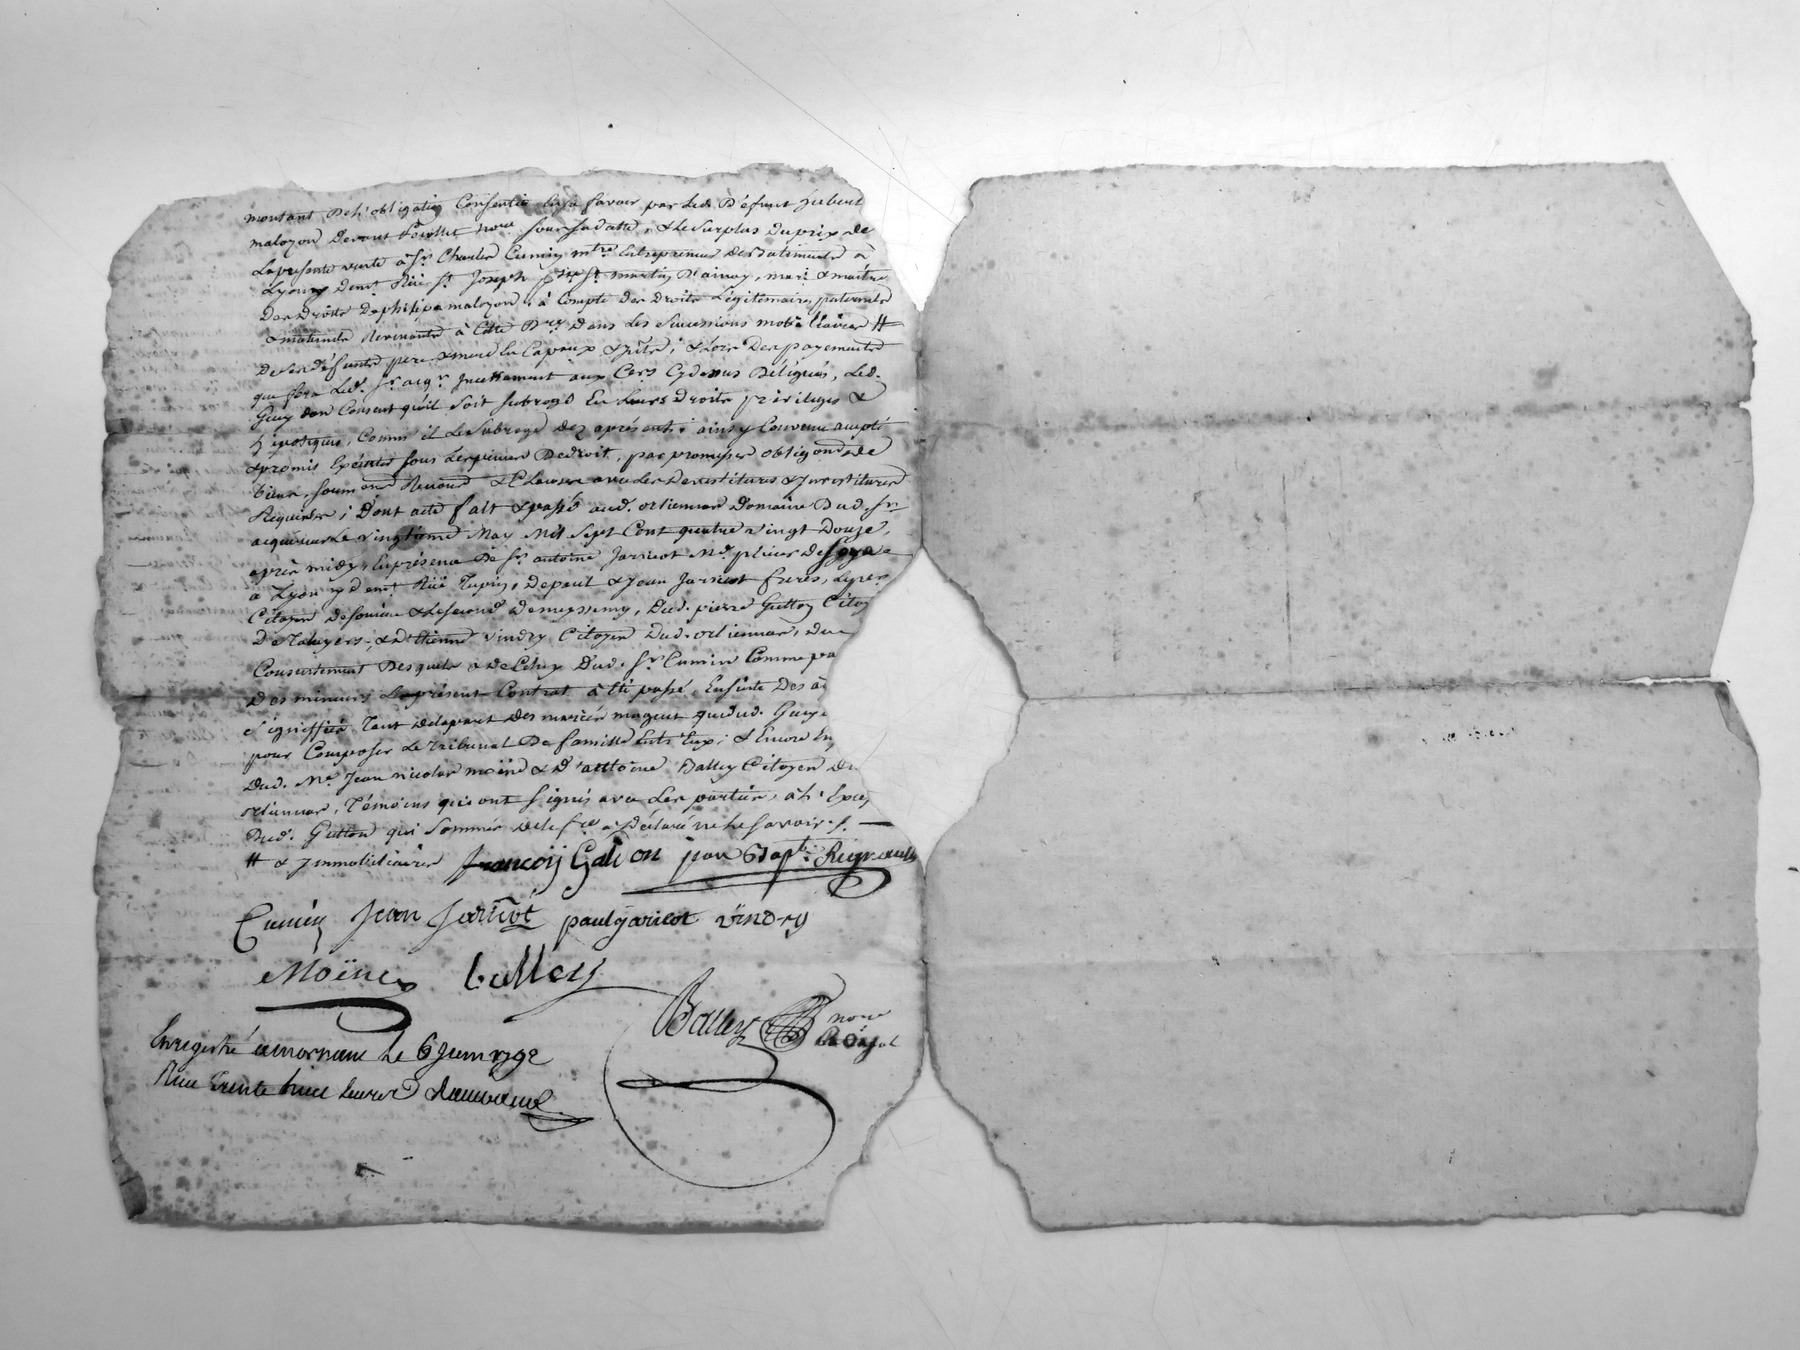 montant De l'obligation Consentie En sa faveur par Led. Défunt
maloyon Devant notre sous sa datte, & le Surplus Du prix de
La presente vente à Sr. Charles Cumin mtre. Entrepreneur De Batiments à
Lyon y demt. Rüe St. Joseph psse St. martin D'ainay, mari & maitre
Des Droits De philipe maloyon, à Compte Des Droits Légitimaires paternels
& maternels Revenants à Cette Dre. Dans Les Successions mobiliaires #
De Ses défunts pere & mere ; & Lors Des payements
que fera Led. Sr. acqr. aux Cers. Cydessus Délégués, Led.
Guy don Consent qu'il Soit Subrogé En Leurs Droits privileges &
hipotèques, Comme il Le Subroge Dez aprésent ; ainsy Convenu accepté
& promis Exécuter sous Les peines De droit, par promesses obligaons. de
biens, soumons. Renons. & Clauses avec Les Devestitures & Investitures
Requises ; Dont acte fait & passé aud. orlienas Domaine Dud. Sr.
acquereur Le vingtieme May Mil Sept Cent quatre vingt Douze,
après midy, En présence De Sr. antoine Jarricot Md. plieur De Soye
a Lyon y demt. Rüe Tupin, De paul & Jean Jarricot freres, Le per
Citoyen De & Le Second De messimy, Dud. pierre Gutton Citoy
De Taluyers, & D'Etienne Vindry Citoyen Dud. orlienas, du
Consentement Desquels & De Celuy Dud. Sr. Cumin Comme pa
Des mineurs Le présent Contrat à été passé, Ensuite Des a
Signiffiés Tant De la part Des mariés que dud. Guy
pour Composer Le Tribunal De famille Entr'Eux ; & Encore En
Dud. Me. Jean nicolas moïne & D'antoine Balley Citoyen Du
orlienas, Témoins qui ont Signés avec Les parties, à l'Exce
Dud. Gutton qui Sommé De Le fre. a Déclaré ne Le Savoir.
# & Immobiliaires françois jean Bapte.
Cumin Jean Jaricot paul jaricot vindry
Moïne balley
Balley nore Royal
Enregistré a mornant le 6 juin 1792
Reçu Trente huit livres